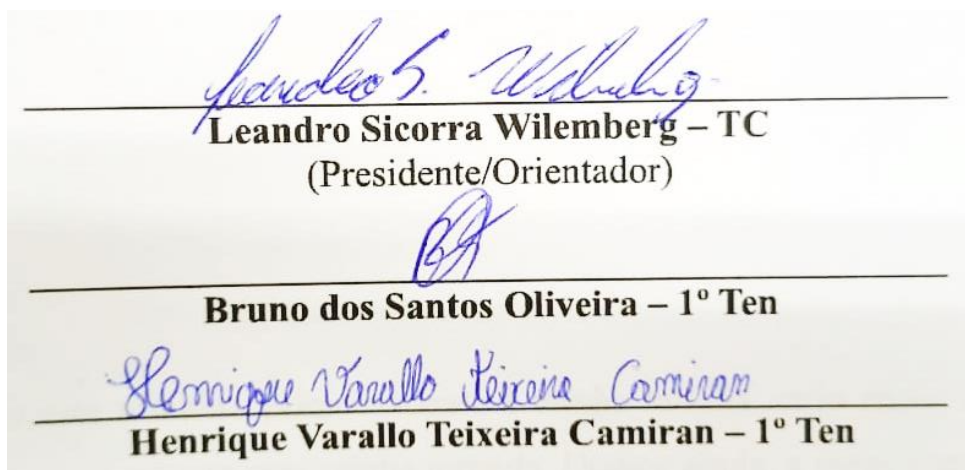 Leandro S. Wilemberg
Leandro Sicorra Wilemberg – TC
(Presidente/Orientador)
Bruno dos Santos Oliveira – 1º Ten
Henrique Varallo Teixeira Camiran
Henrique Varallo Teixeira Camiran – 1º Ten